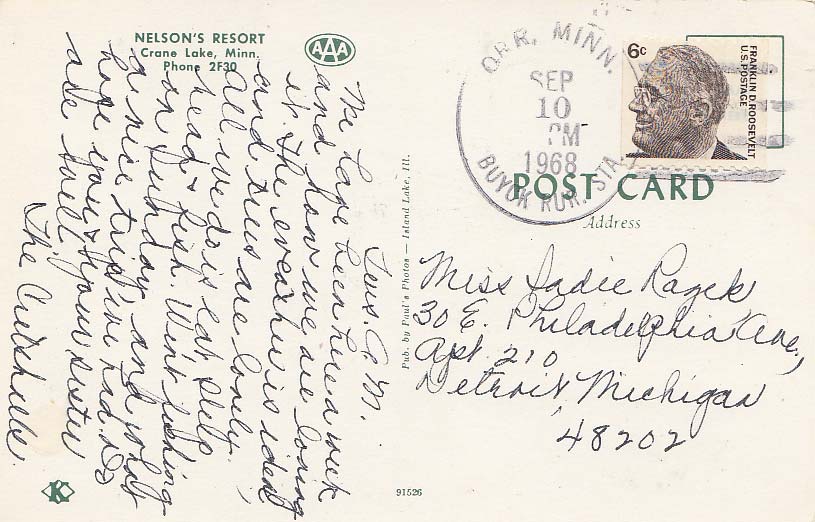 NELSON'S RESORT
Crane Lake, Minn.
Phone 2F30
AAA
Tues. A.M.
We have been here a week
and how we are loving
it. The weather is ideal
and trees are lovely.
All we do is eat, sleep
read & fish. Went fishing
on Sunday and what
a nice trip we had. Do
hope you & your sister
are swell.
The
K
Pub. by Paul's Photos — Island Lake, Ill.
91526
ORR, MINN.
SEP
10
PM
1968
BUYCK RUR. STA.
6c
FRANKLIN D. ROOSEVELT
U.S. POSTAGE
POST CARD
Address
Miss Sadie Razek
30 E. Philadelphia Ave.,
Apt. 210
Detroit, Michigan
48202